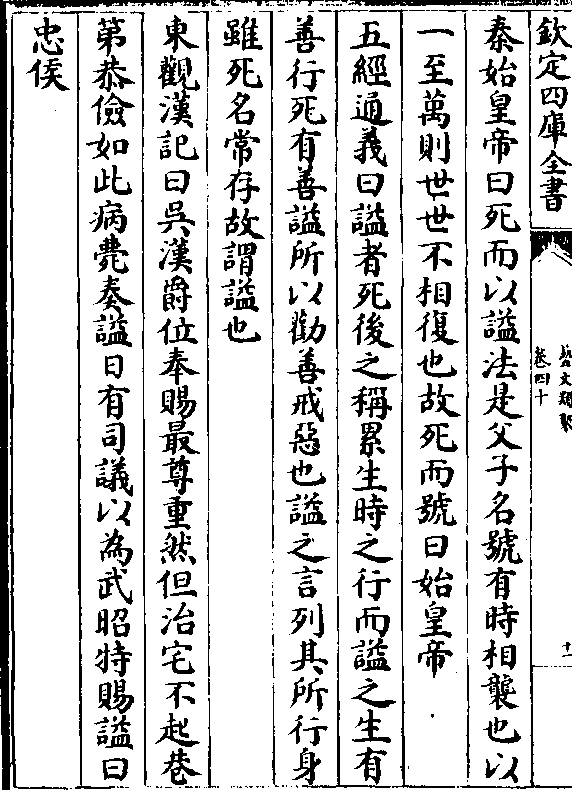 欽定四庫全書
藝文類聚
卷四十
十一
秦始皇帝曰死而以謚法是父子名號有時相襲也以
一至萬則世世不相復也故死而號曰始皇帝
五經通義曰謚者死後之稱累生時之行而謚之生有
善行死有善謚所以勸善戒惡也謚之言列其所行身
雖死名常存故謂謚也
東觀漢記曰吳漢爵位奉賜最尊重然但治宅不起巷
第恭儉如此病薨奏謚曰有司議以為武昭特賜謚曰
忠侯